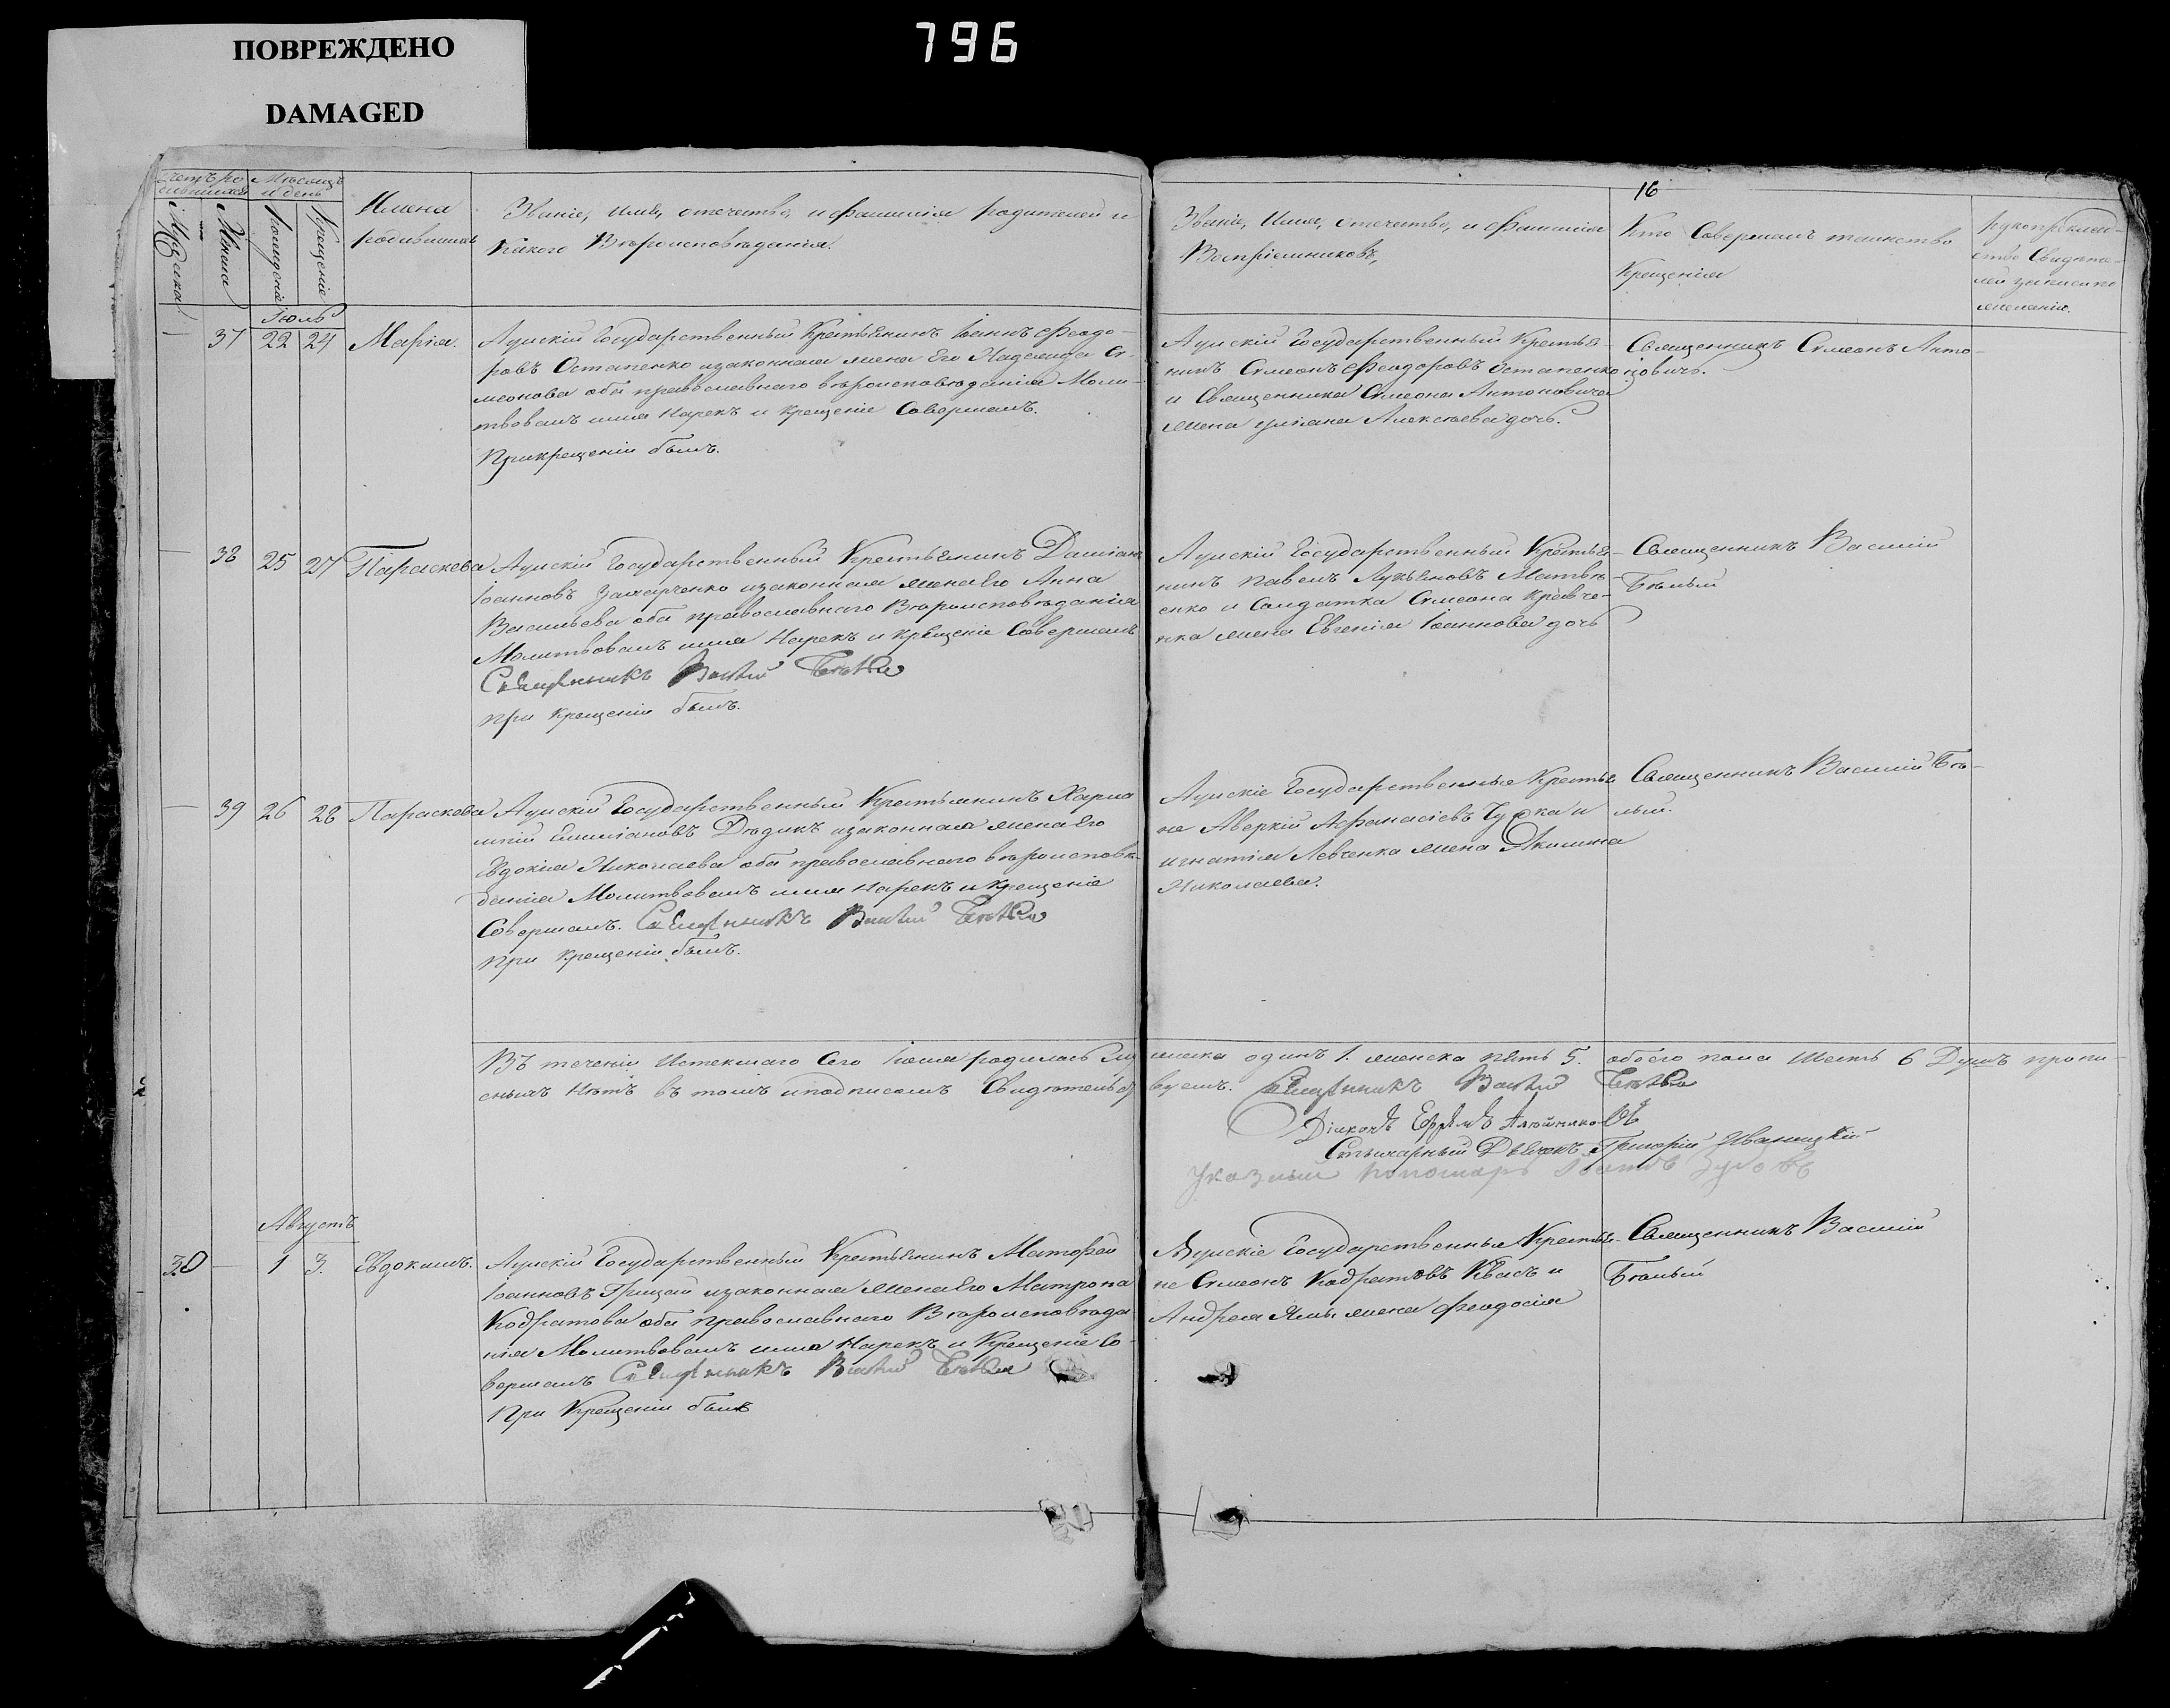 ПОВРЕЖДЕНО
DAMAGED
796
16
Счетъ ро-
дившихся
Мужеска
Женска
Мѣсяцъ
и день
Рожденіе
Крещеніе
Имена
родившихъ
Званіе, имя, отечество, и фамилія родителей и
какого Вѣроисповѣданія.
Званіе, Имя, отечество, и Фамилія
Воспріемниковъ,
Кто Совершалъ таинство
Крещенія
рукоприклад-
ство Свидѣте-
лей записи по
желанію.
Іюль
37 22 24 Марія.
Аулскій Государственный Крестьянинъ Іоаннъ Феодо-
ровъ Остапенко изаконная жена Его Надежда Си-
меонова оба православнаго вѣроисповѣданія Моли-
твовалъ имя Нарекъ и крещеніе Совершалъ.
Прикрещеніи былъ.
Аулскій Государственный Крестья-
нинъ Симеонъ Феодоровъ Остапенко
и Священника Симеона Антоновича
жена Уліана Алексѣева дочь.
Священникъ Симеонъ Анто-
новичъ.
38 25 27 Параскева
Аулскій Государственный Крестьянинъ Даміанъ
Іоанновъ изаконная жена Его Анна
Васильева оба православнаго Вѣроисповѣданія
Молитвовалъ имя Нарекъ и крещеніе Совершалъ
Священникъ Василій
при крещеніи былъ.
Аулскій Государственный Крестья-
нинъ Павелъ Лукьяновъ Матвѣ-
енко и Солдатка Симеона Кравче-
нка жена Евгенія Іоаннова дочь
Священникъ Василій
Бѣлый
39 26 28 Параскева
Аулскій Государственный Крестьянинъ Харла
мпій Емиліановъ Дюдикъ изаконная жена Его
Евдокія Николаева оба православнаго вѣроисповѣ-
данія Молитвовалъ имя Нарекъ и Крещеніе
Совершалъ. Священникъ Василій
При Крещеніи былъ.
Аулскіе Государственные Крестья
не Аверкій Афанасіевъ и
игнатія Левченка жена Акилина
Николаева.
Священникъ Василій Бѣ-
лый.
Въ теченіи Истекшаго Сего Іюля родилось му жеска одинъ 1. женска пять 5. обоего пола Шесть 6 Душъ пропи-
сныхъ Нѣтъ въ томъ иподписомъ Свидѣтельст вуемъ. Священникъ Василій
Діаконъ Ефремъ
Стихарный Дьячокъ Григорій Иваницкій
Указный пономарь Зубовъ
Августъ
30 1 3. Евдокимъ.
Аулскій Государственный Крестьянинъ Матфей
Іоанновъ Грицай изаконная жена Его Матрона
Кодратова оба православнаго Вѣроисповѣда
нія Молитвовалъ имя Нарекъ и Крещеніе Со-
вершалъ Священникъ Василій
При Крещеніи былъ
Аулскіе Государственные Крестья-
не Симеонъ Кодратовъ Квасъ и
Андрея Ямы жена Феодосія
Священникъ Василій
Бѣлый